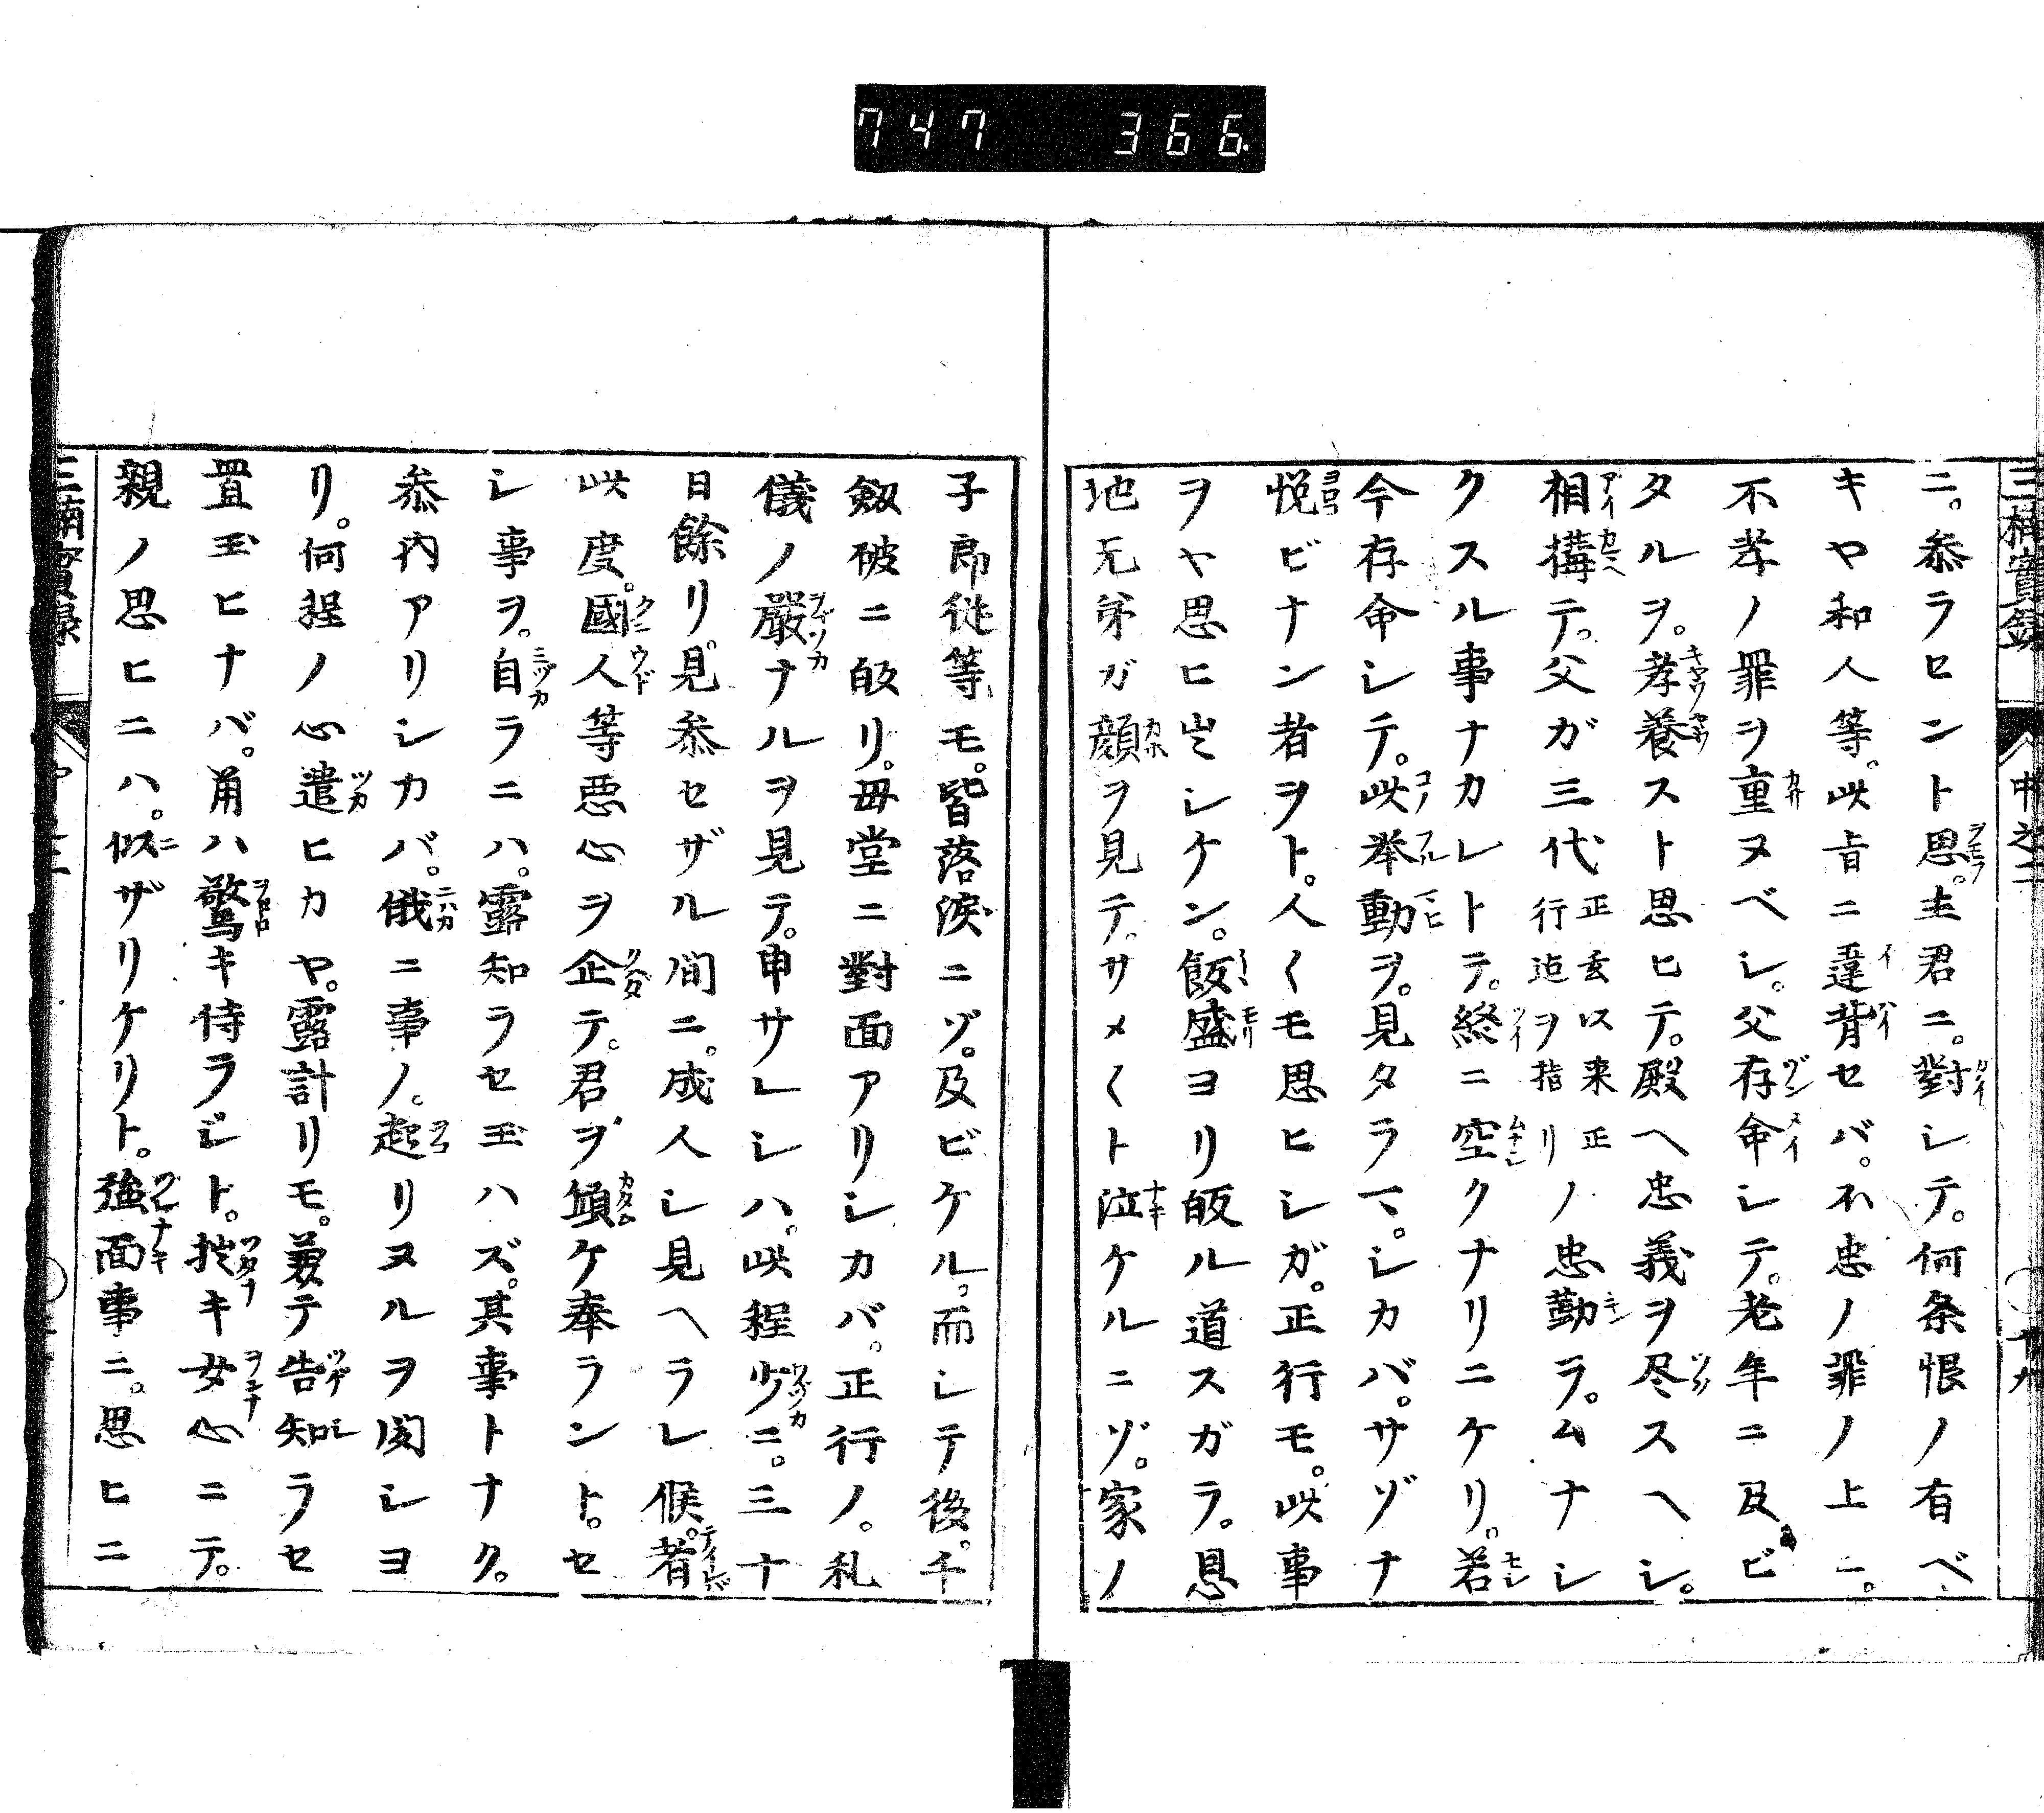 747 366.
三楠實録 中之二 十九
ニ。叅ラセント思。主君ニ。對シテ。何条恨ノ有ベ
キヤ和人等。此旨ニ違背セバ。不忠ノ罪ノ上ニ。
不孝ノ罪ヲ重ヌベシ。父存命シテ。老年ニ及ビ
タルヲ。孝養スト思ヒテ。殿ヘ忠義ヲ尽スヘシ。
相搆テ。父ガ三代正玄以来正行迠ヲ指リノ忠勤ラ。ムナシ
クスル事ナカレトテ。終ニ空クナリニケリ。若
今存命シテ。此挙動ヲ。見タラマシカバ。サゾナ
悦ビナン者ヲト。人〱モ思ヒシガ。正行モ。此事
ヲヤ思ヒ出シケン。飯盛ヨリ皈ル道スガラ。恩
地兄弟ガ顔ヲ見テ。サメ〱ト泣ケルニゾ。家ノ
子郎従等モ。皆落涙ニゾ。及ビケル。而シテ後。千
剱破ニ皈リ。母堂ニ對面アリシカバ。正行ノ。礼
儀ノ嚴ナルヲ見テ。申サレシハ。此程少ニ。三十
日餘リ。見叅セザル間ニ。成人シ見ヘラレ候。者
此度。國人等悪心ヲ企テ。君ヲ傾ケ奉ラント。セ
シ事ヲ。自ラニハ。露知ラセ玉ハズ。其事トナク。
叅内アリシカバ。俄ニ事ノ。起リヌルヲ聞シヨ
リ。何程ノ心遣ヒカヤ。露計リモ。兼テ告知ラセ
置玉ヒナバ。角ハ驚キ侍ラジト。拙キ女心ニテ。
親ノ思ヒニハ。似ザリケリト。強面事ニ。思ヒニ
三楠實録